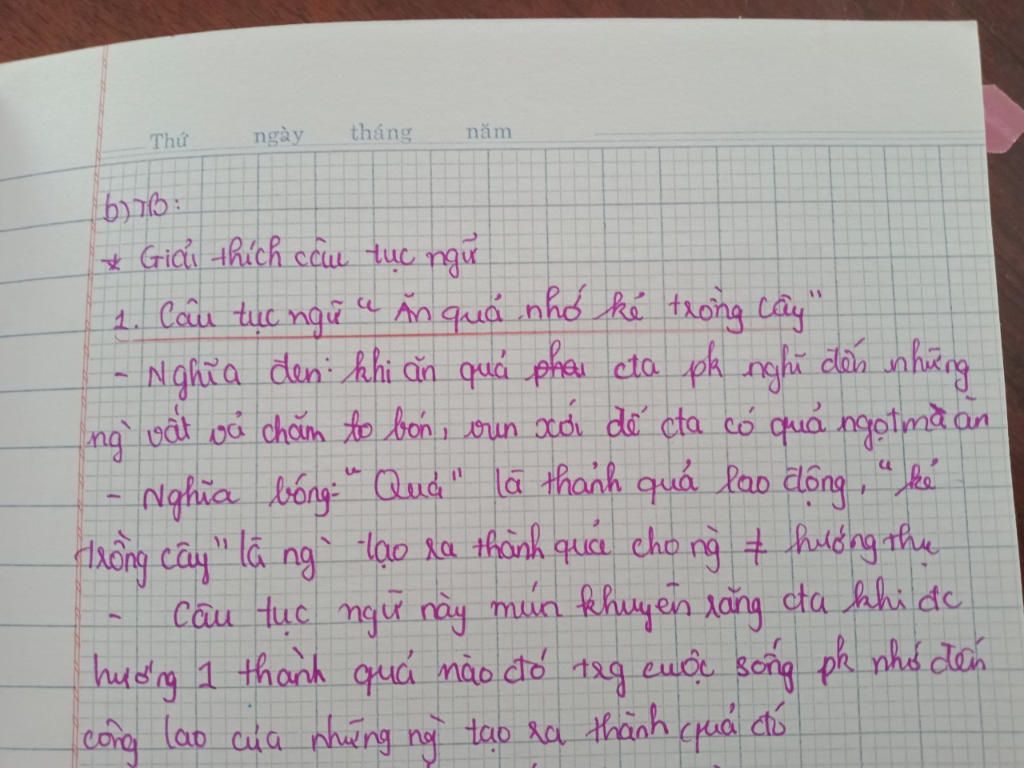 Thứ ngày tháng năm
b) TB:
* Giải thích câu tục ngữ
1. Câu tục ngữ "Ăn quả nhớ kẻ trồng cây"
- Nghĩa đen: khi ăn quả cta pk nghĩ đến những
ng` vất vả chăm bón, vun xới để cta có quả ngọt mà ăn
- Nghĩa bóng: "Quả" là thành quả lao động, "kẻ
trồng cây" là ng` tạo ra thành quả cho ng` ≠ hưởng thụ
- Câu tục ngữ này mún khuyên rằng cta khi đc
hưởng 1 thành quả nào đó trg cuộc sống pk nhớ đến
công lao của những ng` tạo ra thành quả đó